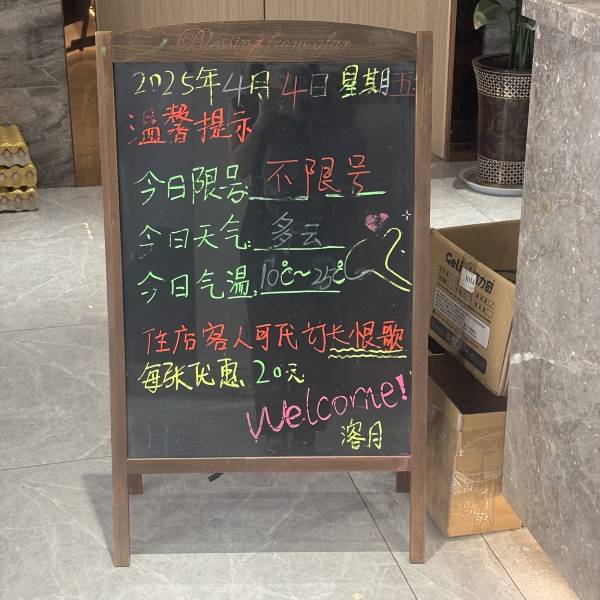 Blessing from afar
2025年4月4日 星期五
温馨提示
今日限号: 不限号
今日天气: 多云
今日气温: 10℃~25℃
住店客人可代订长恨歌
每张优惠 20元
Welcome!
溶月